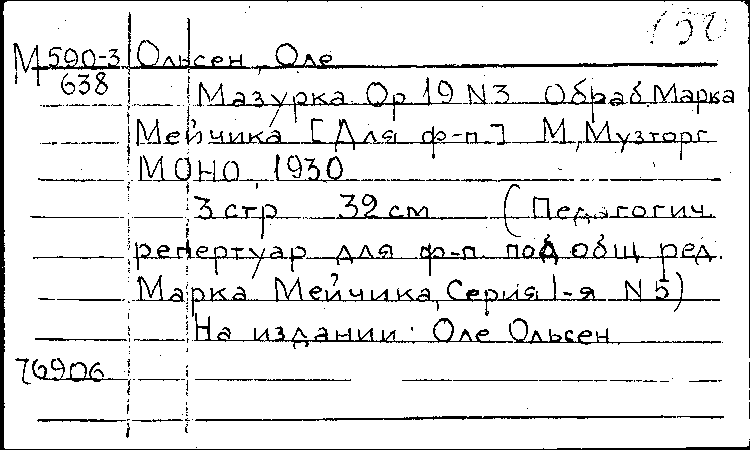 150
М 590-3 Ольсен, Оле
638 Мазурка Op 19 N3 Обраб. Марка
Мейчика [Для ф-п.] М., Музторг
МОНО, 1930
3 стр 32 см (Педагогич.
репертуар для ф-п. под общ ред.
Марка Мейчика, Серия I-я N 5)
На издании: Оле Ольсен
76906